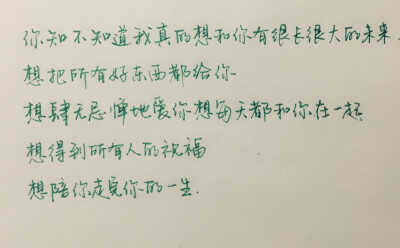 你知不知道我真的想和你有很长很大的未来.
想把所有好东西都给你
想肆无忌惮地爱你想每天都和你在一起
想得到所有人的祝福
想陪你走完你的一生.